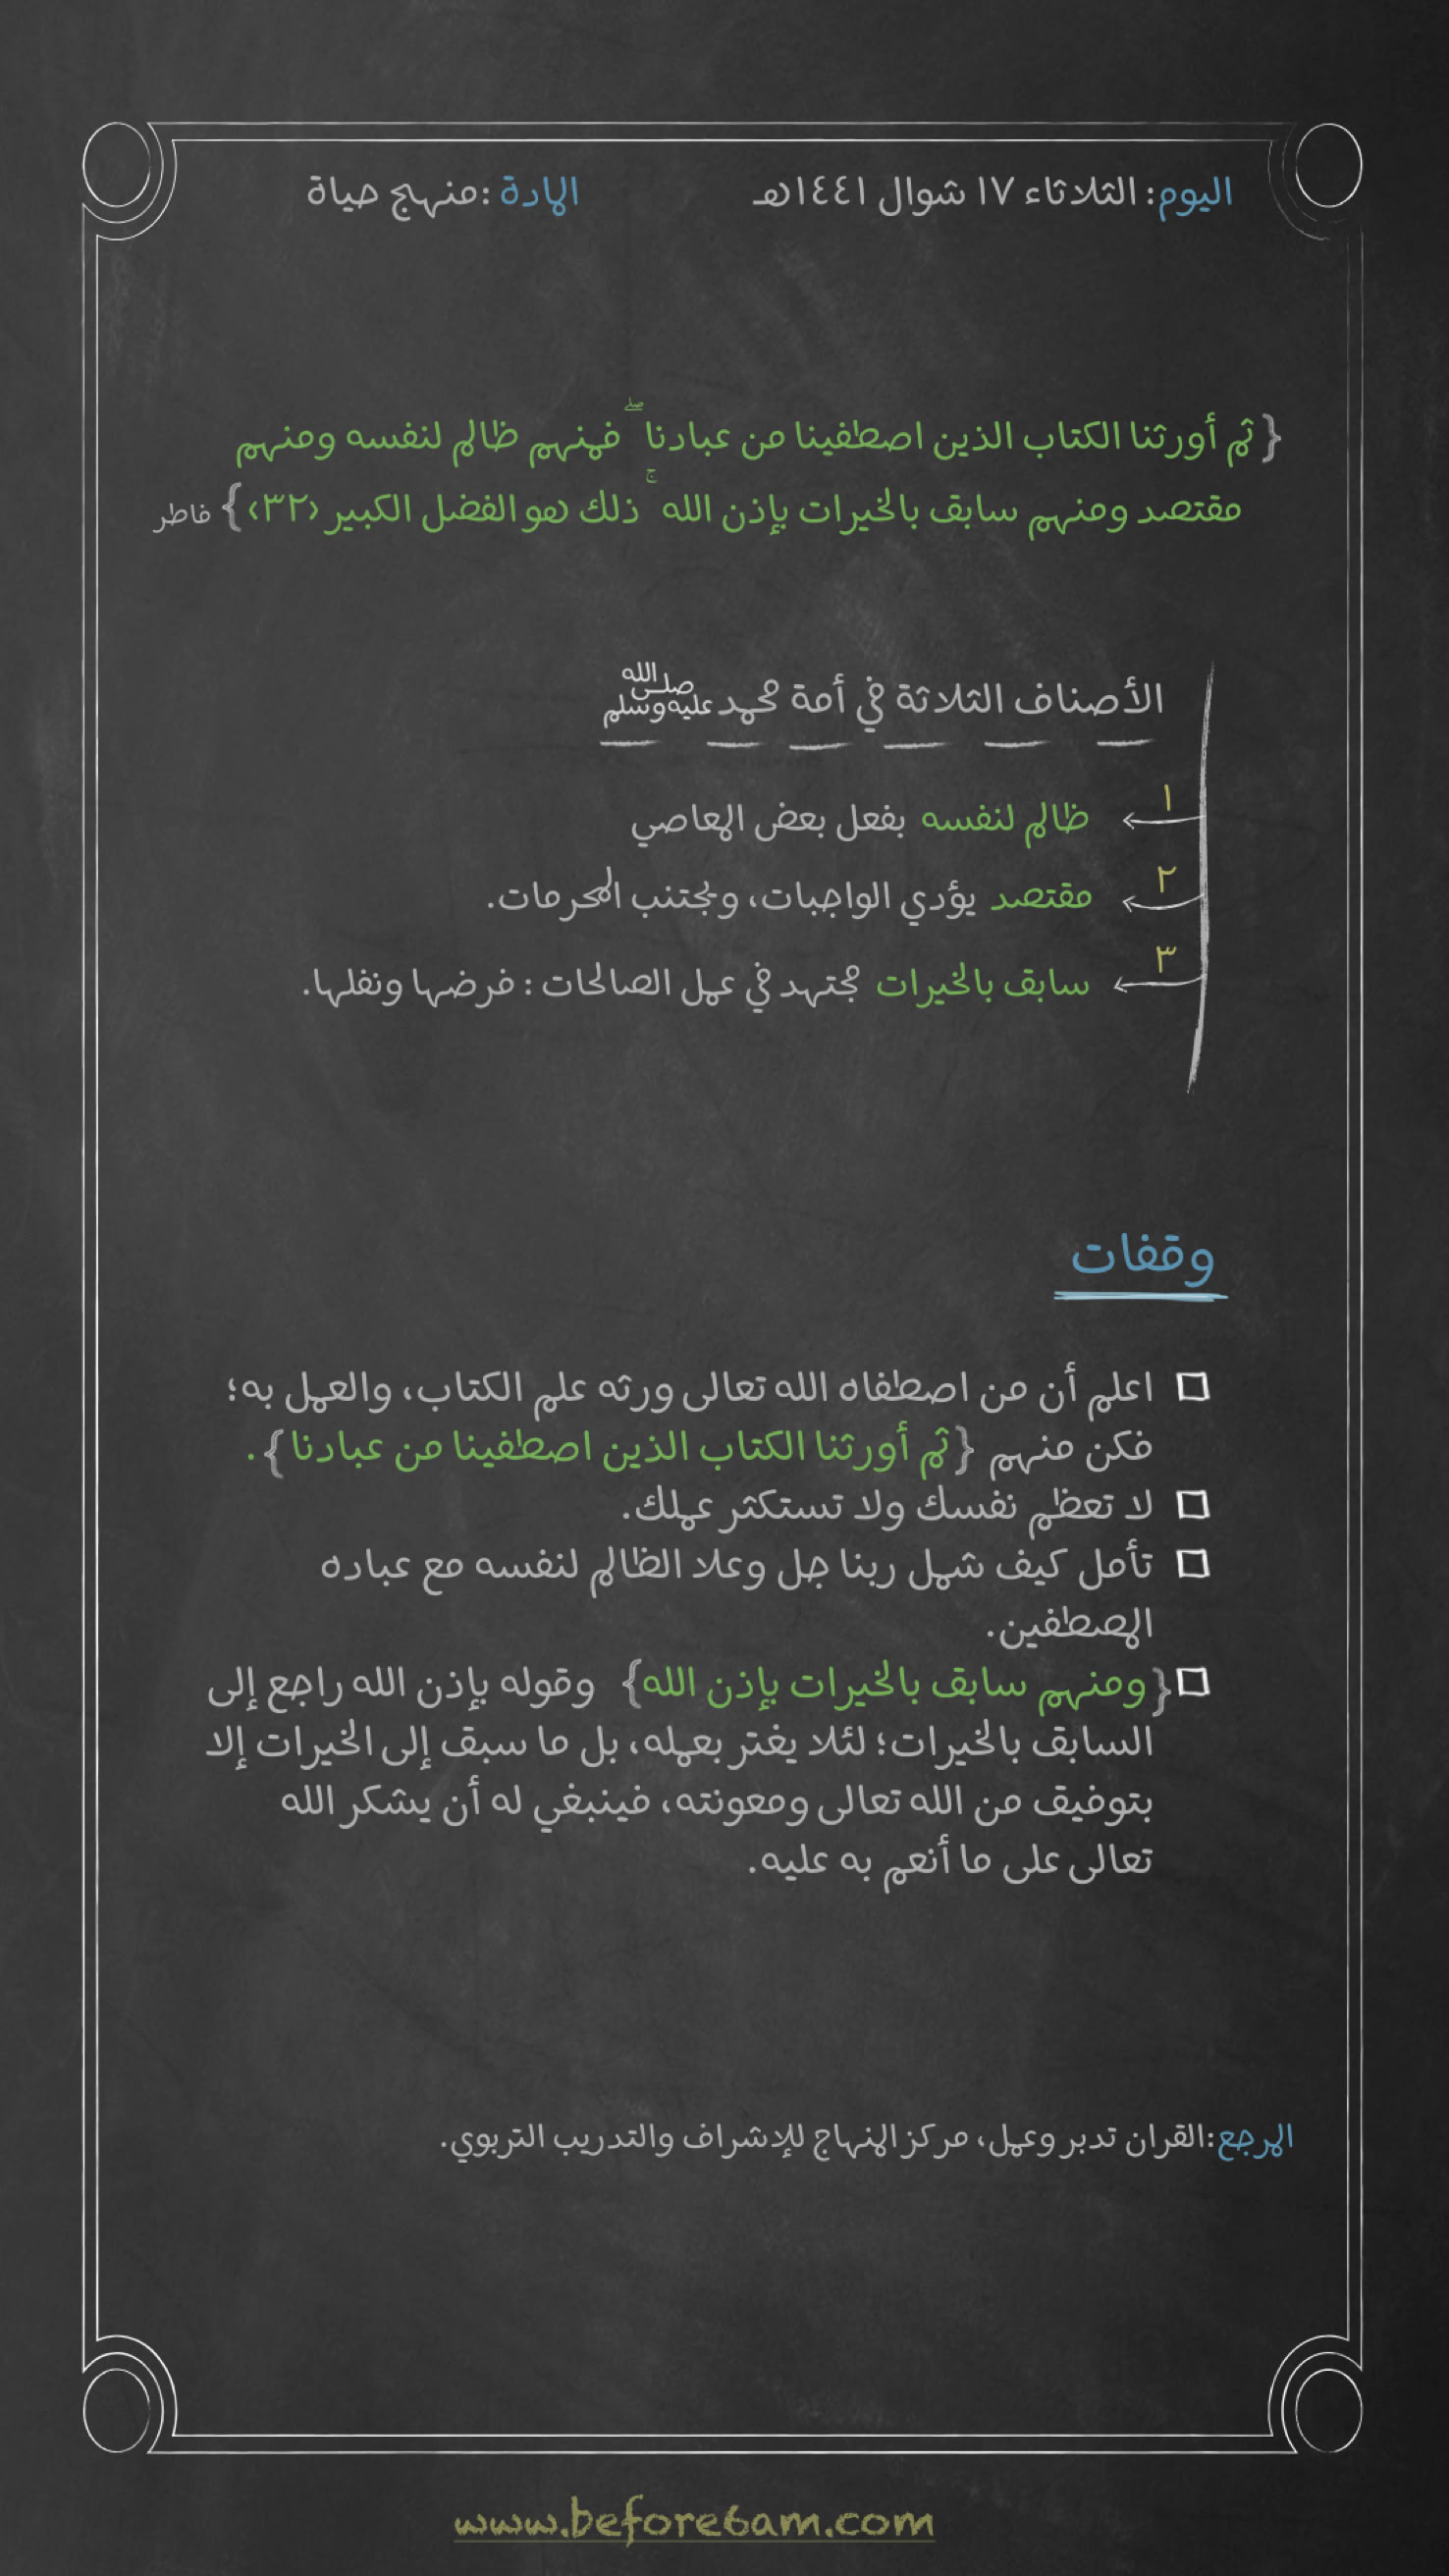 اليوم: الثلاثاء ١٧ شوال ١٤٤١هـ المادة :منهج حياة
{ثم أورثنا الكتاب الذين اصطفينا من عبادنا ۖ فمنهم ظالم لنفسه ومنهم
مقتصد ومنهم سابق بالخيرات بإذن الله ۚ ذلك هو الفضل الكبير ‹٣٢›} فاطر
الأصناف الثلاثة في أمة محمد ﷺ
١ ظالم لنفسه بفعل بعض المعاصي
٢ مقتصد يؤدي الواجبات، ويجتنب المحرمات.
٣ سابق بالخيرات مجتهد في عمل الصالحات : فرضها ونفلها.
وقفات
اعلم أن من اصطفاه الله تعالى ورثه علم الكتاب، والعمل به؛
فكن منهم {ثم أورثنا الكتاب الذين اصطفينا من عبادنا}.
لا تعظم نفسك ولا تستكثر عملك.
تأمل كيف شمل ربنا جل وعلا الظالم لنفسه مع عباده
المصطفين.
{ومنهم سابق بالخيرات بإذن الله} وقوله بإذن الله راجع إلى
السابق بالخيرات؛ لئلا يغتر بعمله، بل ما سبق إلى الخيرات إلا
بتوفيق من الله تعالى ومعونته، فينبغي له أن يشكر الله
تعالى على ما أنعم به عليه.
المرجع:القران تدبر وعمل، مركز المنهاج للإشراف والتدريب التربوي.
www.before6am.com